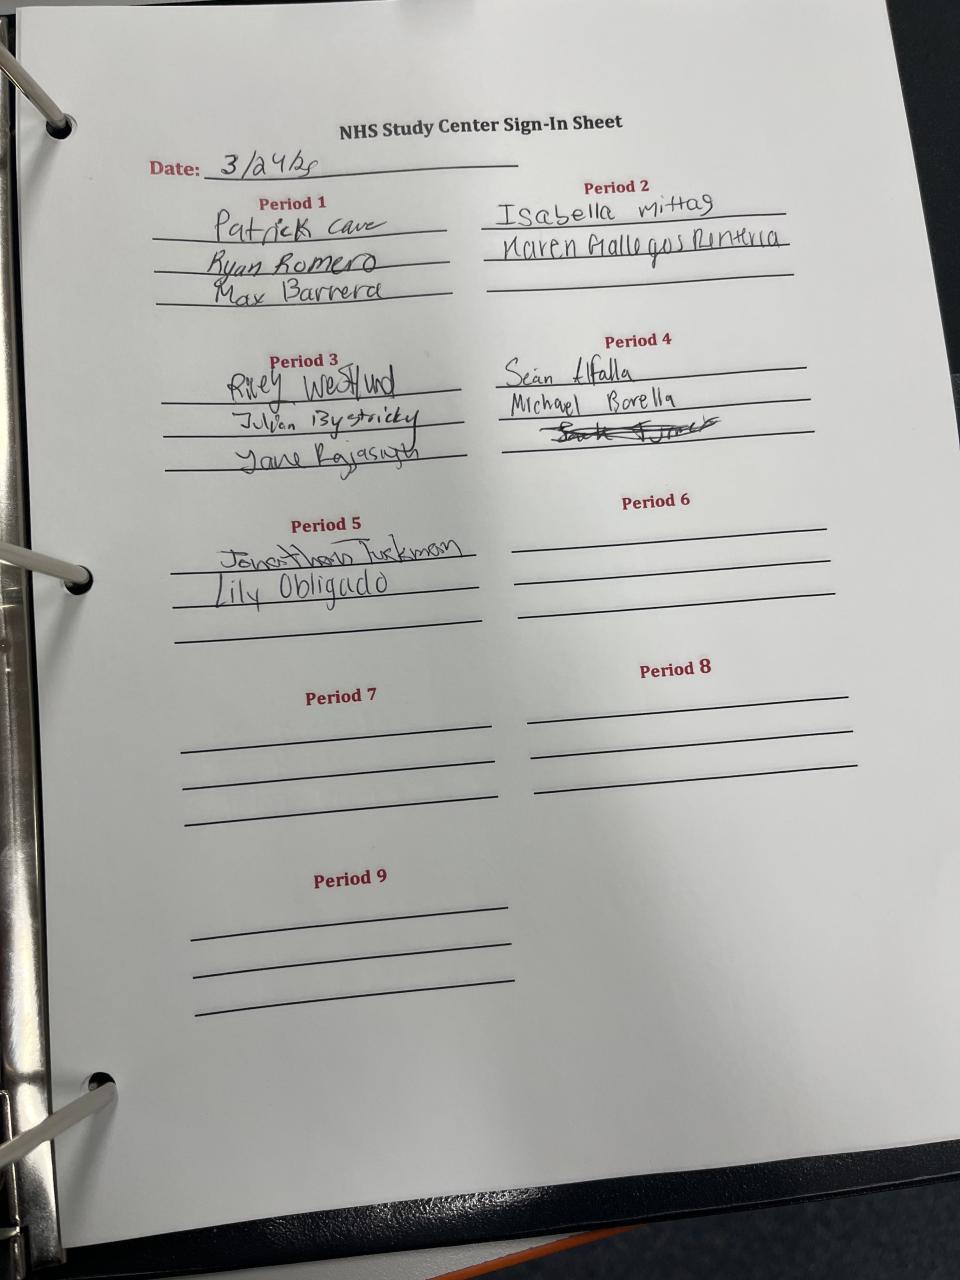 NHS Study Center Sign-In Sheet
Date: 3/24/25
Period 1
Patrick Cave
Ryan Romero
Max Barrera
Period 2
Isabella Mittag
Karen Gallegos Renteria
Period 3
Riley Westlund
Julian Bystricky
Period 4
Sean Alfalla
Michael Borella
Period 5
Jonathan Tuckman
Lily Obligado
Period 6
Period 7
Period 8
Period 9